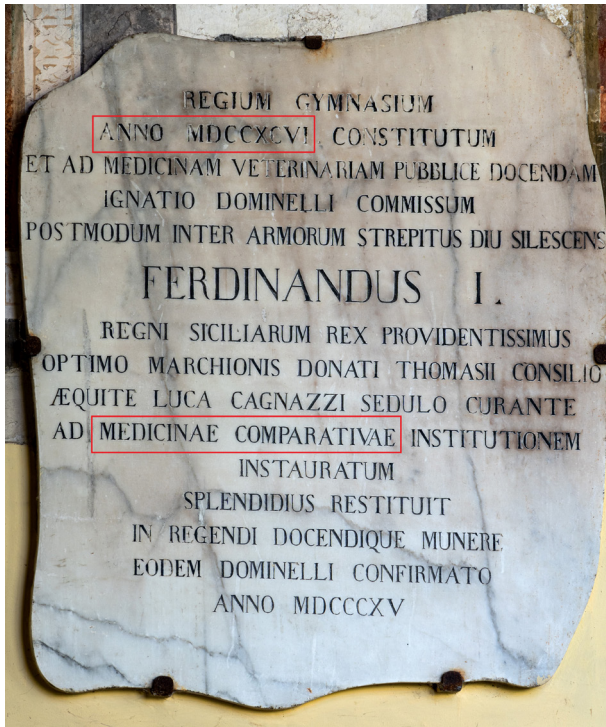 REGIUM GYMNASIUM
ANNO MDCCXCVI CONSTITUTUM
ET AD MEDICINAM VETERINARIAM PUBBLICE DOCENDAM
IGNATIO DOMINELLI COMMISSUM
POSTMODUM INTER ARMORUM STREPITUS DIU SILESCENS
FERDINANDUS I.
REGNI SICILIARUM REX PROVIDENTISSIMUS
OPTIMO MARCHIONIS DONATI THOMASII CONSILIO
ÆQUITE LUCA CAGNAZZI SEDULO CURANTE
AD MEDICINAE COMPARATIVAE INSTITUTIONEM
INSTAURATUM
SPLENDIDIUS RESTITUIT
IN REGENDI DOCENDIQUE MUNERE
EODEM DOMINELLI CONFIRMATO
ANNO MDCCCXV